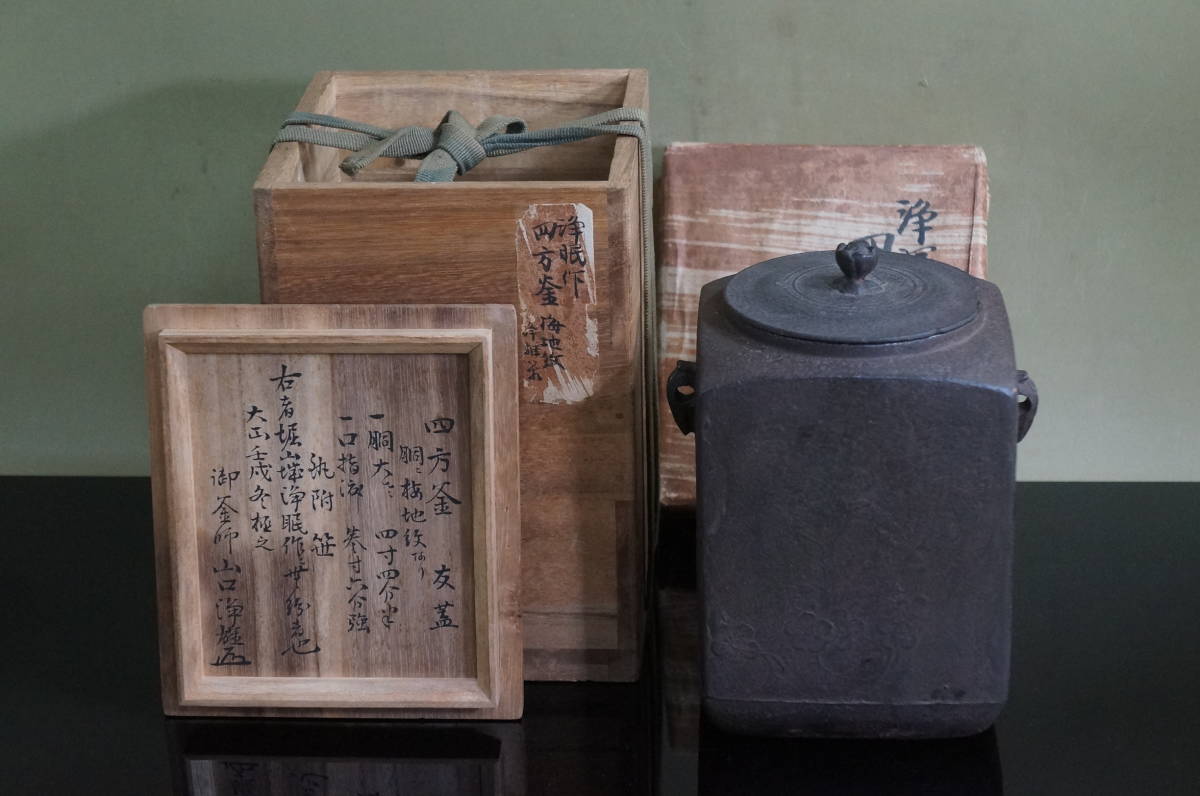 四方釜 友蓋
胴ニ梅地紋あり
一胴大サ 四寸四分半
一口指渡 巻寸六分強
丸附 笹
右者堀山城浄眠作ニ無紛者也
大正壬戌冬極之
御釜師 山口浄雄
浄眠作
四方釜
梅地紋
浄雄箱
浄
四